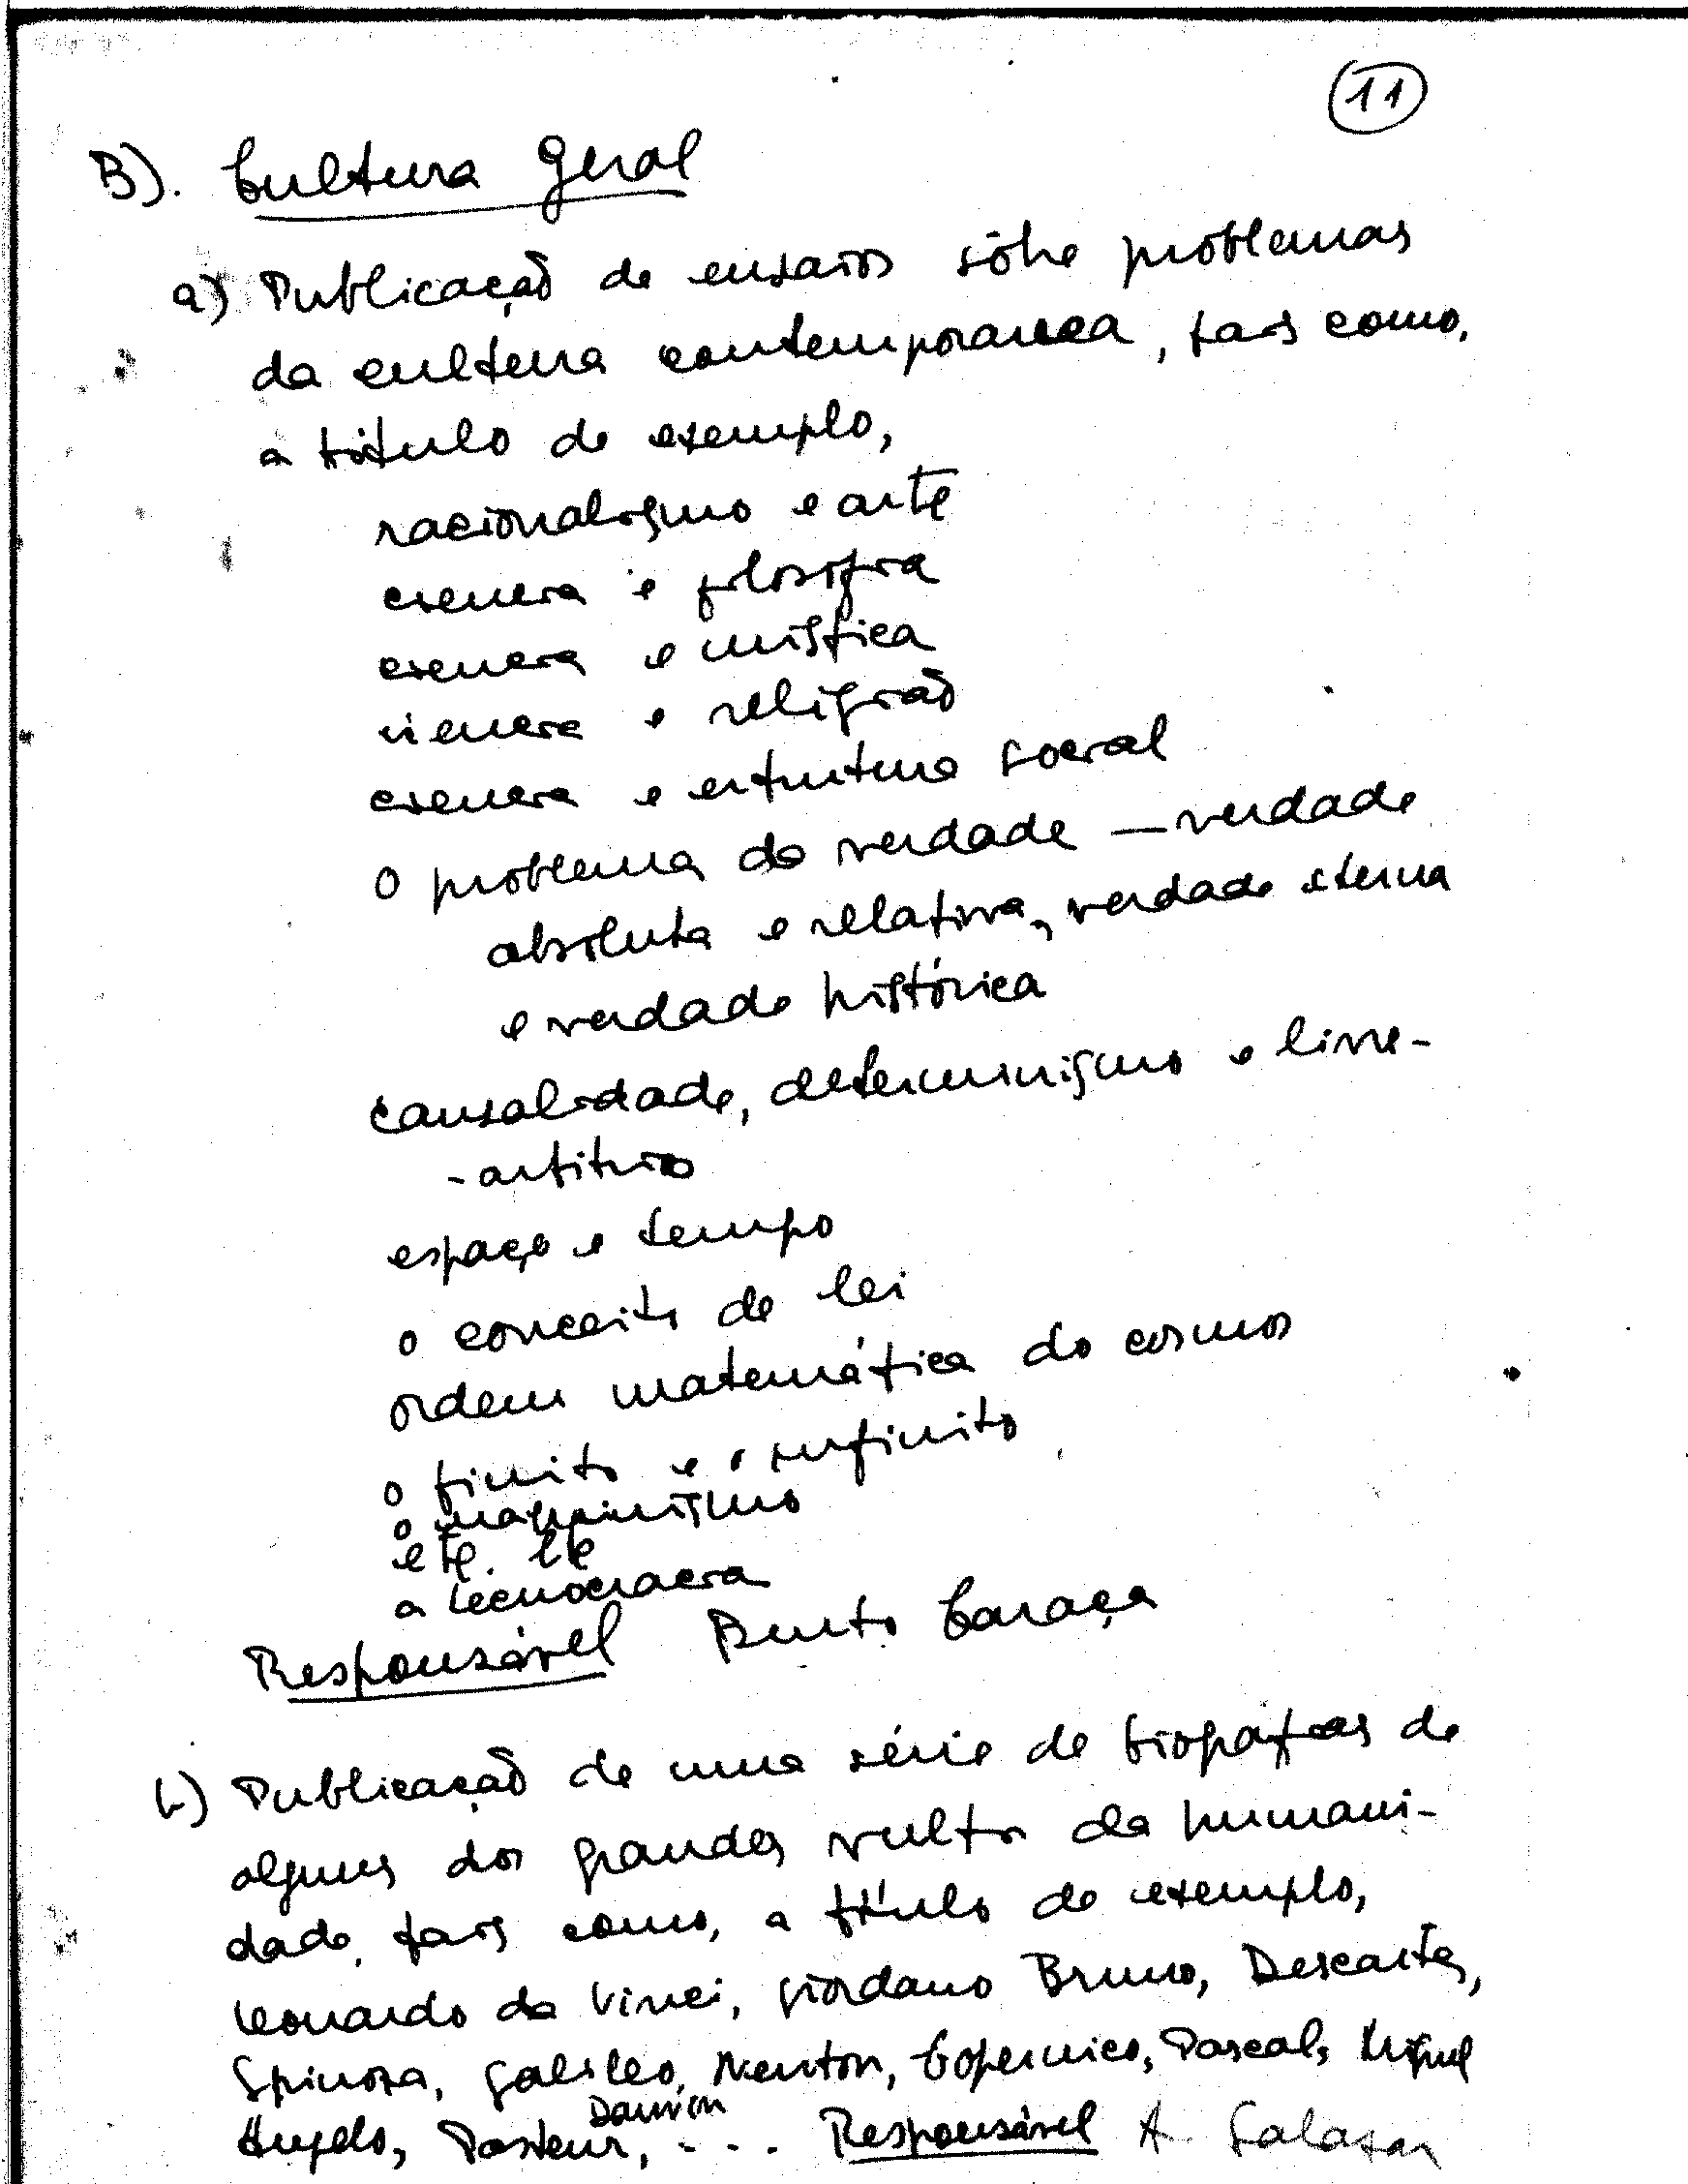 11
B). Cultura Geral
a) Publicação de ensaios sôbre problemas
da cultura contemporanea, tais como,
a título de exemplo,
racionalismo e arte
ciencia e filosofia
ciencia e mística
ciencia e religião
ciencia e estrutura social
O problema da verdade — verdade
absoluta e relativa, verdade eterna
e verdade histórica
Causalidade, determinismo e livre-
-arbitrio
espaço e tempo
o conceito de lei
ordem matemática do cosmos
o finito e o infinito
o maquinismo
etc. etc
a tecnocracia
Responsável Bento Caraça
b) Publicação de uma série de biografias de
alguns dos grandes vultos da humani-
dade, tais como, a título de exemplo,
Leonardo da Vinci, Giordano Bruno, Descartes,
Spinosa, Galileo, Newton, Copernico, Pascal, Miguel
Angelo, Pasteur, Darwin ... Responsável A. Salazar